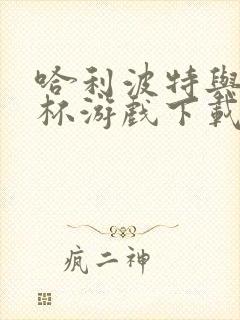 哈利波特與
杯游戲下載
疯二神